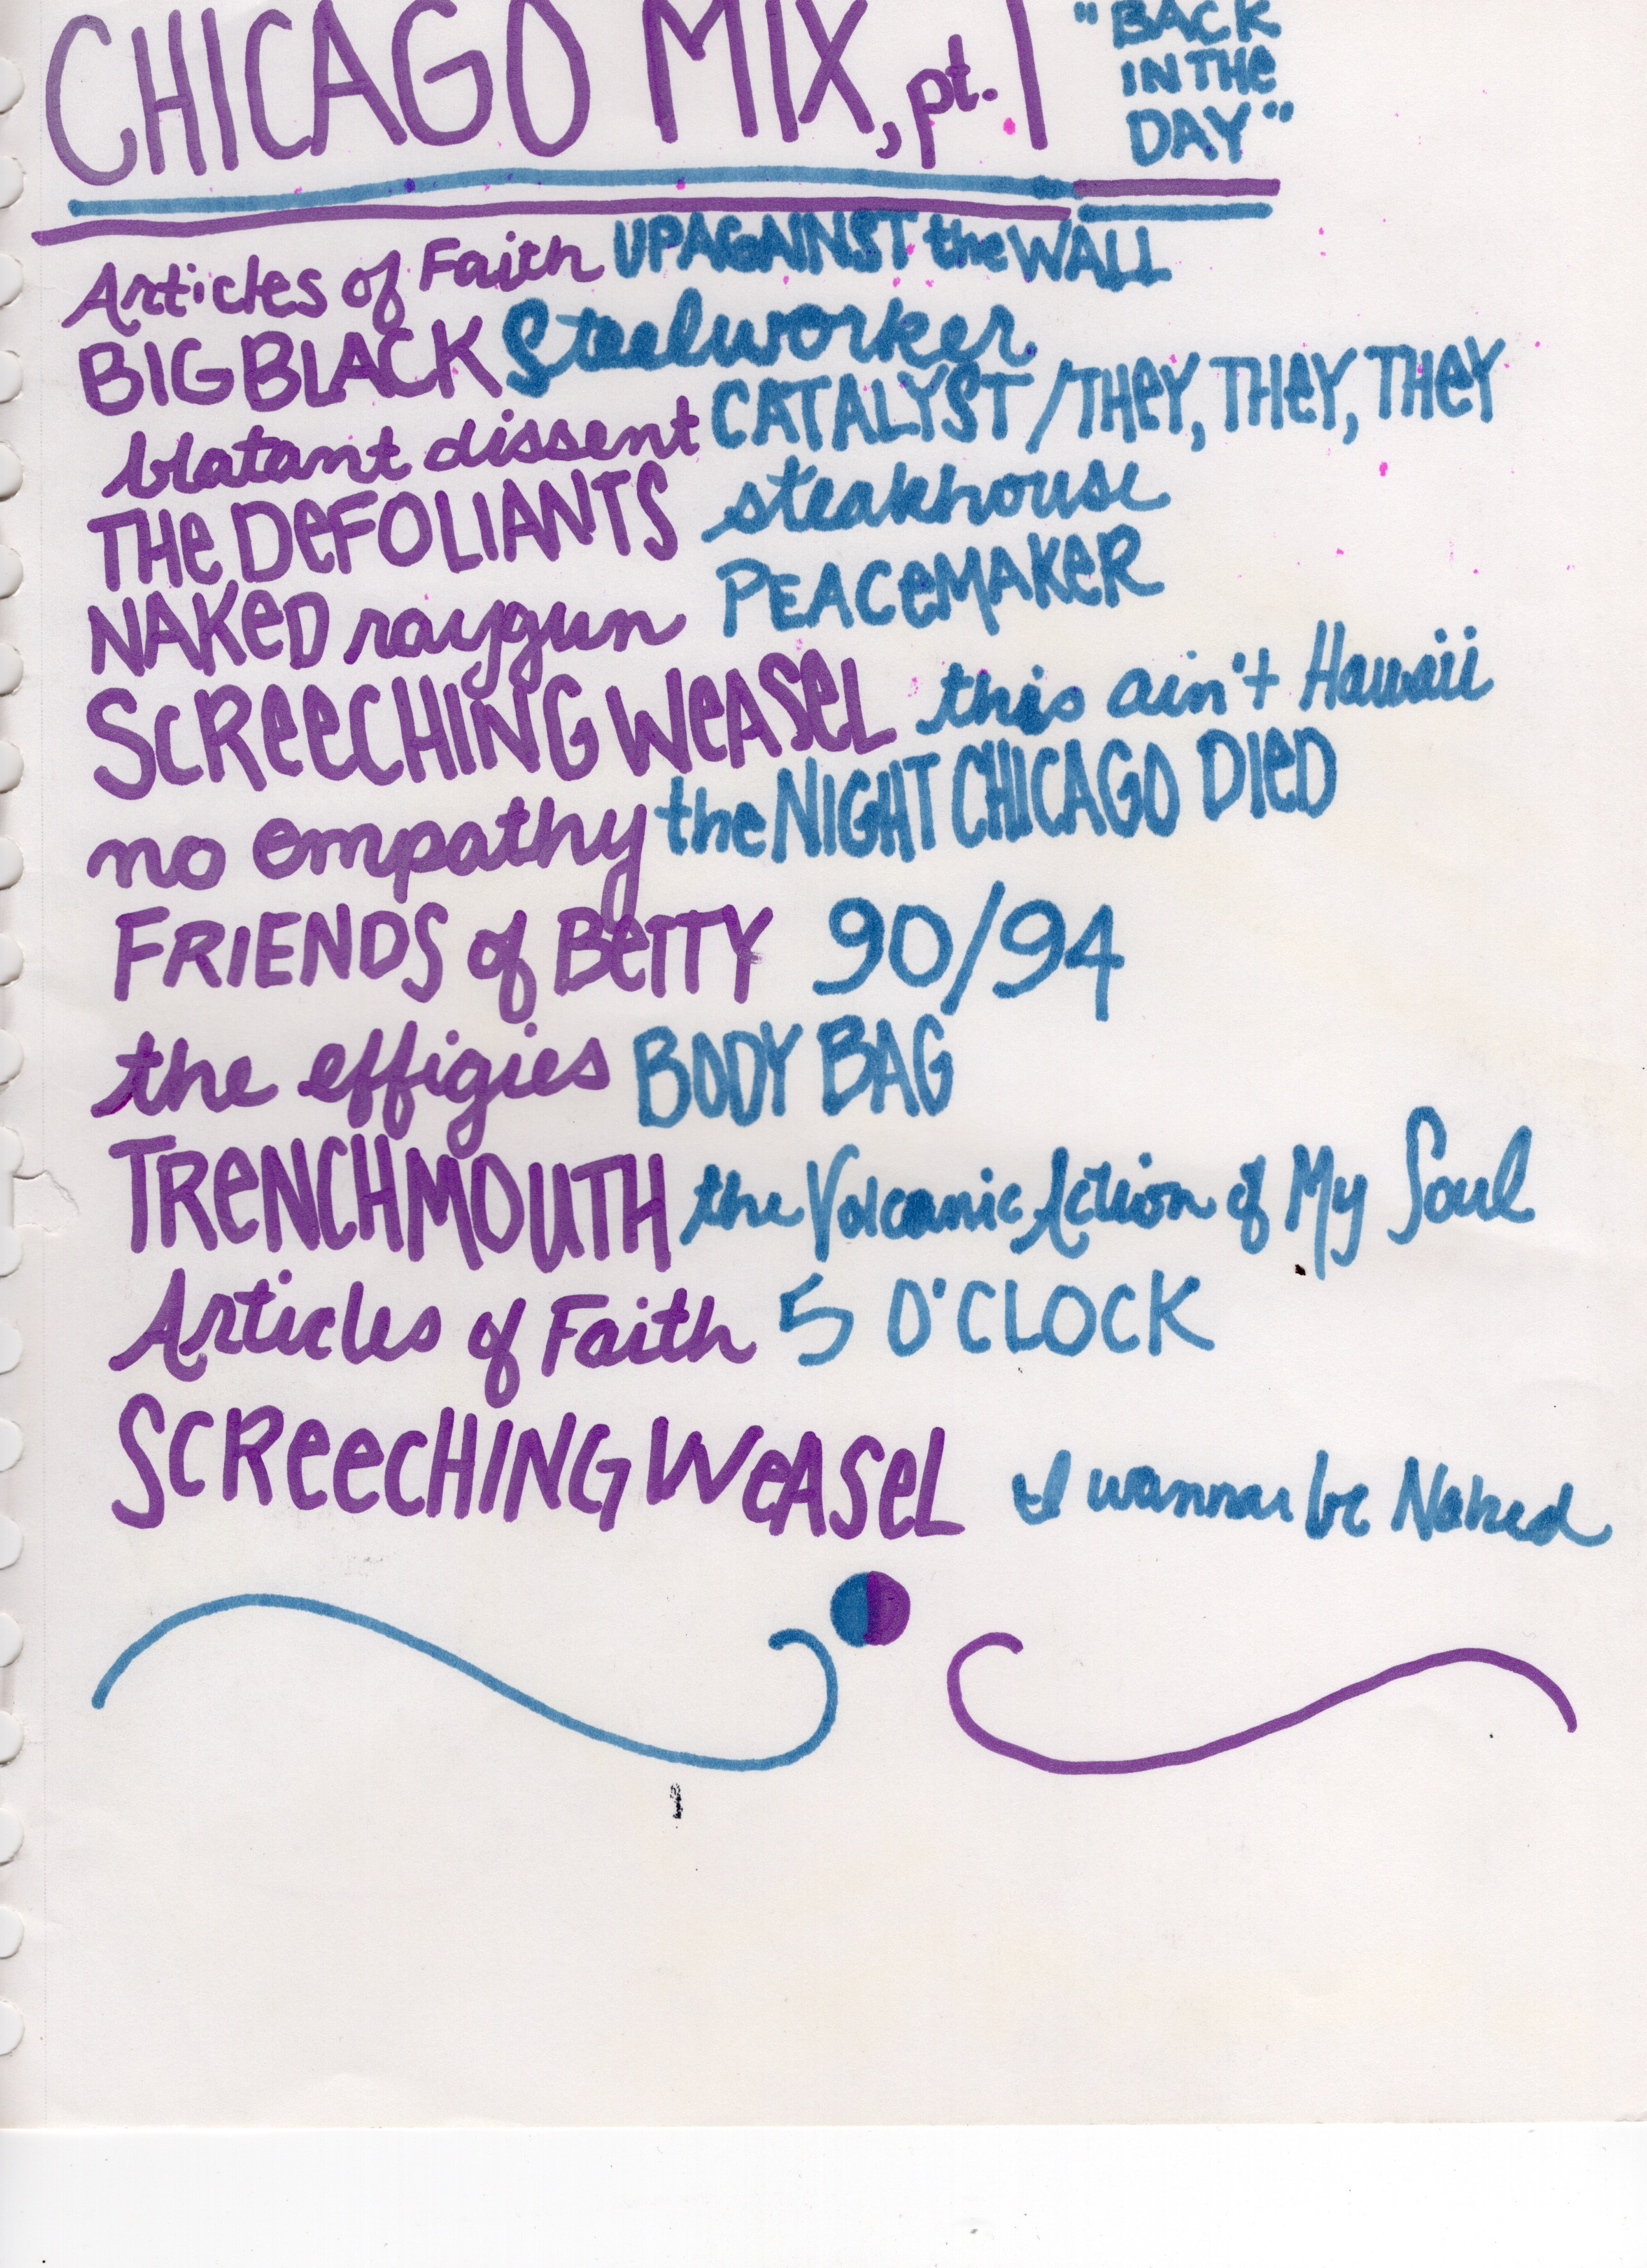 CHICAGO MIX, pt. 1 "BACK
IN THe
DAY"
Articles of Faith UP AGAINST the WALL
BIG BLACK Steelworker
blatant dissent CATALYST / THeY, THeY, THeY
THe DeFOLIANTS steakhouse
NAKeD raygun PEACeMAKeR
SCReeCHING WeASeL this ain't Hawaii
no empathy the NIGHT CHICAGO DIeD
FRIENDS of BeTTY 90/94
the effigies BODY BAG
TReNCHMOUTH the Volcanic Action of My Soul
Articles of Faith 5 O'CLOCK
SCReecHING WeASeL I wanna be Naked